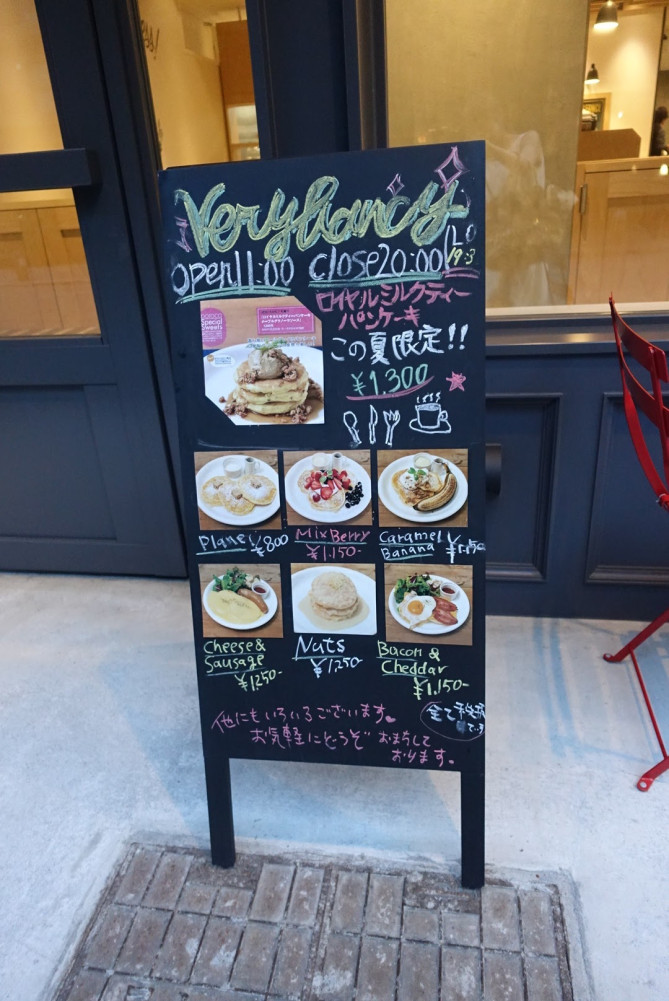 Veryfancy
open11:00 close20:00
ロイヤルミルクティー
パンケーキ
この夏限定!!
¥1,300
Special
Sweets
Plane ¥800
MixBerry
¥1,150-
Caramel
Banana
Cheese&
Sausage
¥1250-
Nuts
¥1,250
Bacon &
Cheddar
¥1,150-
他にもいろいろございます。
お気軽にどうぞ
お待ちして
おります。
全て
です